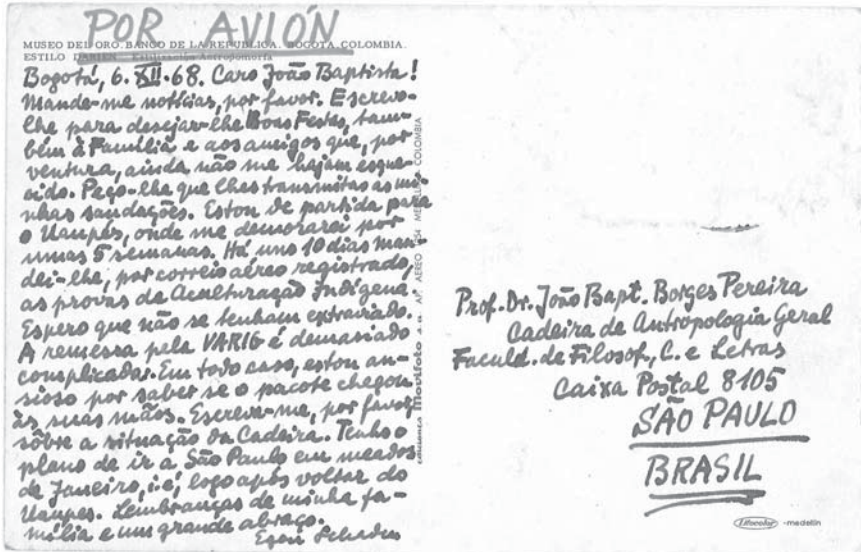 POR AVIÓN
MUSEO DEL ORO. BANCO DE LA REPUBLICA. BOGOTA, COLOMBIA.
ESTILO DARIEN Estilización Antropomorfa
Bogotá, 6. XII. 68. Caro João Baptista!
Mande-me notícias, por favor. Escrevo-
lhe para desejar-lhe Boas Festas, tam-
bém à Família e aos amigos que, por
ventura, ainda não me hajam esque-
cido. Peço-lhe que lhes transmitas as mi-
nhas saudações. Estou de partida para
o Uaupés, onde me demorarei por
umas 5 semanas. Há uns 10 dias man-
dei-lhe, por correio aéreo registrado,
as provas da Aculturação Indígena.
Espero que não se tenham extraviado.
A remessa pela VARIG é demasiado
complicada. Em todo caso, estou an-
sioso por saber se o pacote chegou
às suas mãos. Escreva-me, por favor,
sôbre a situação da Cadeira. Tenho o
plano de ir a São Paulo em meados
de Janeiro, i.é, logo após voltar do
Uaupes. Lembranças de minha fa-
mília e um grande abraço.
Egon Schaden
Movifoto s.a. AP. AEREO COLOMBIA
Prof. Dr. João Bapt. Borges Pereira
Cadeira de Antropologia Geral
Faculd. de Filosof., C. e Letras
Caixa Postal 8105
SÃO PAULO
BRASIL
-medellin